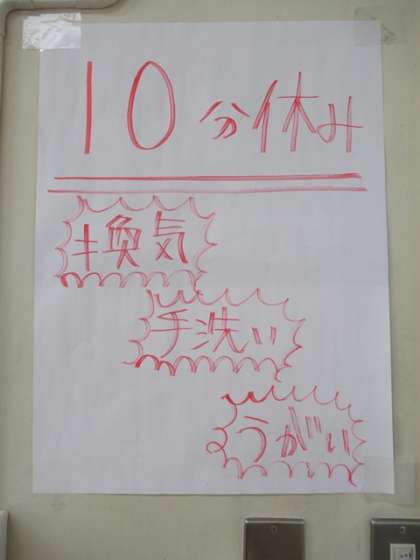 10分休み
換気
手洗い
うがい